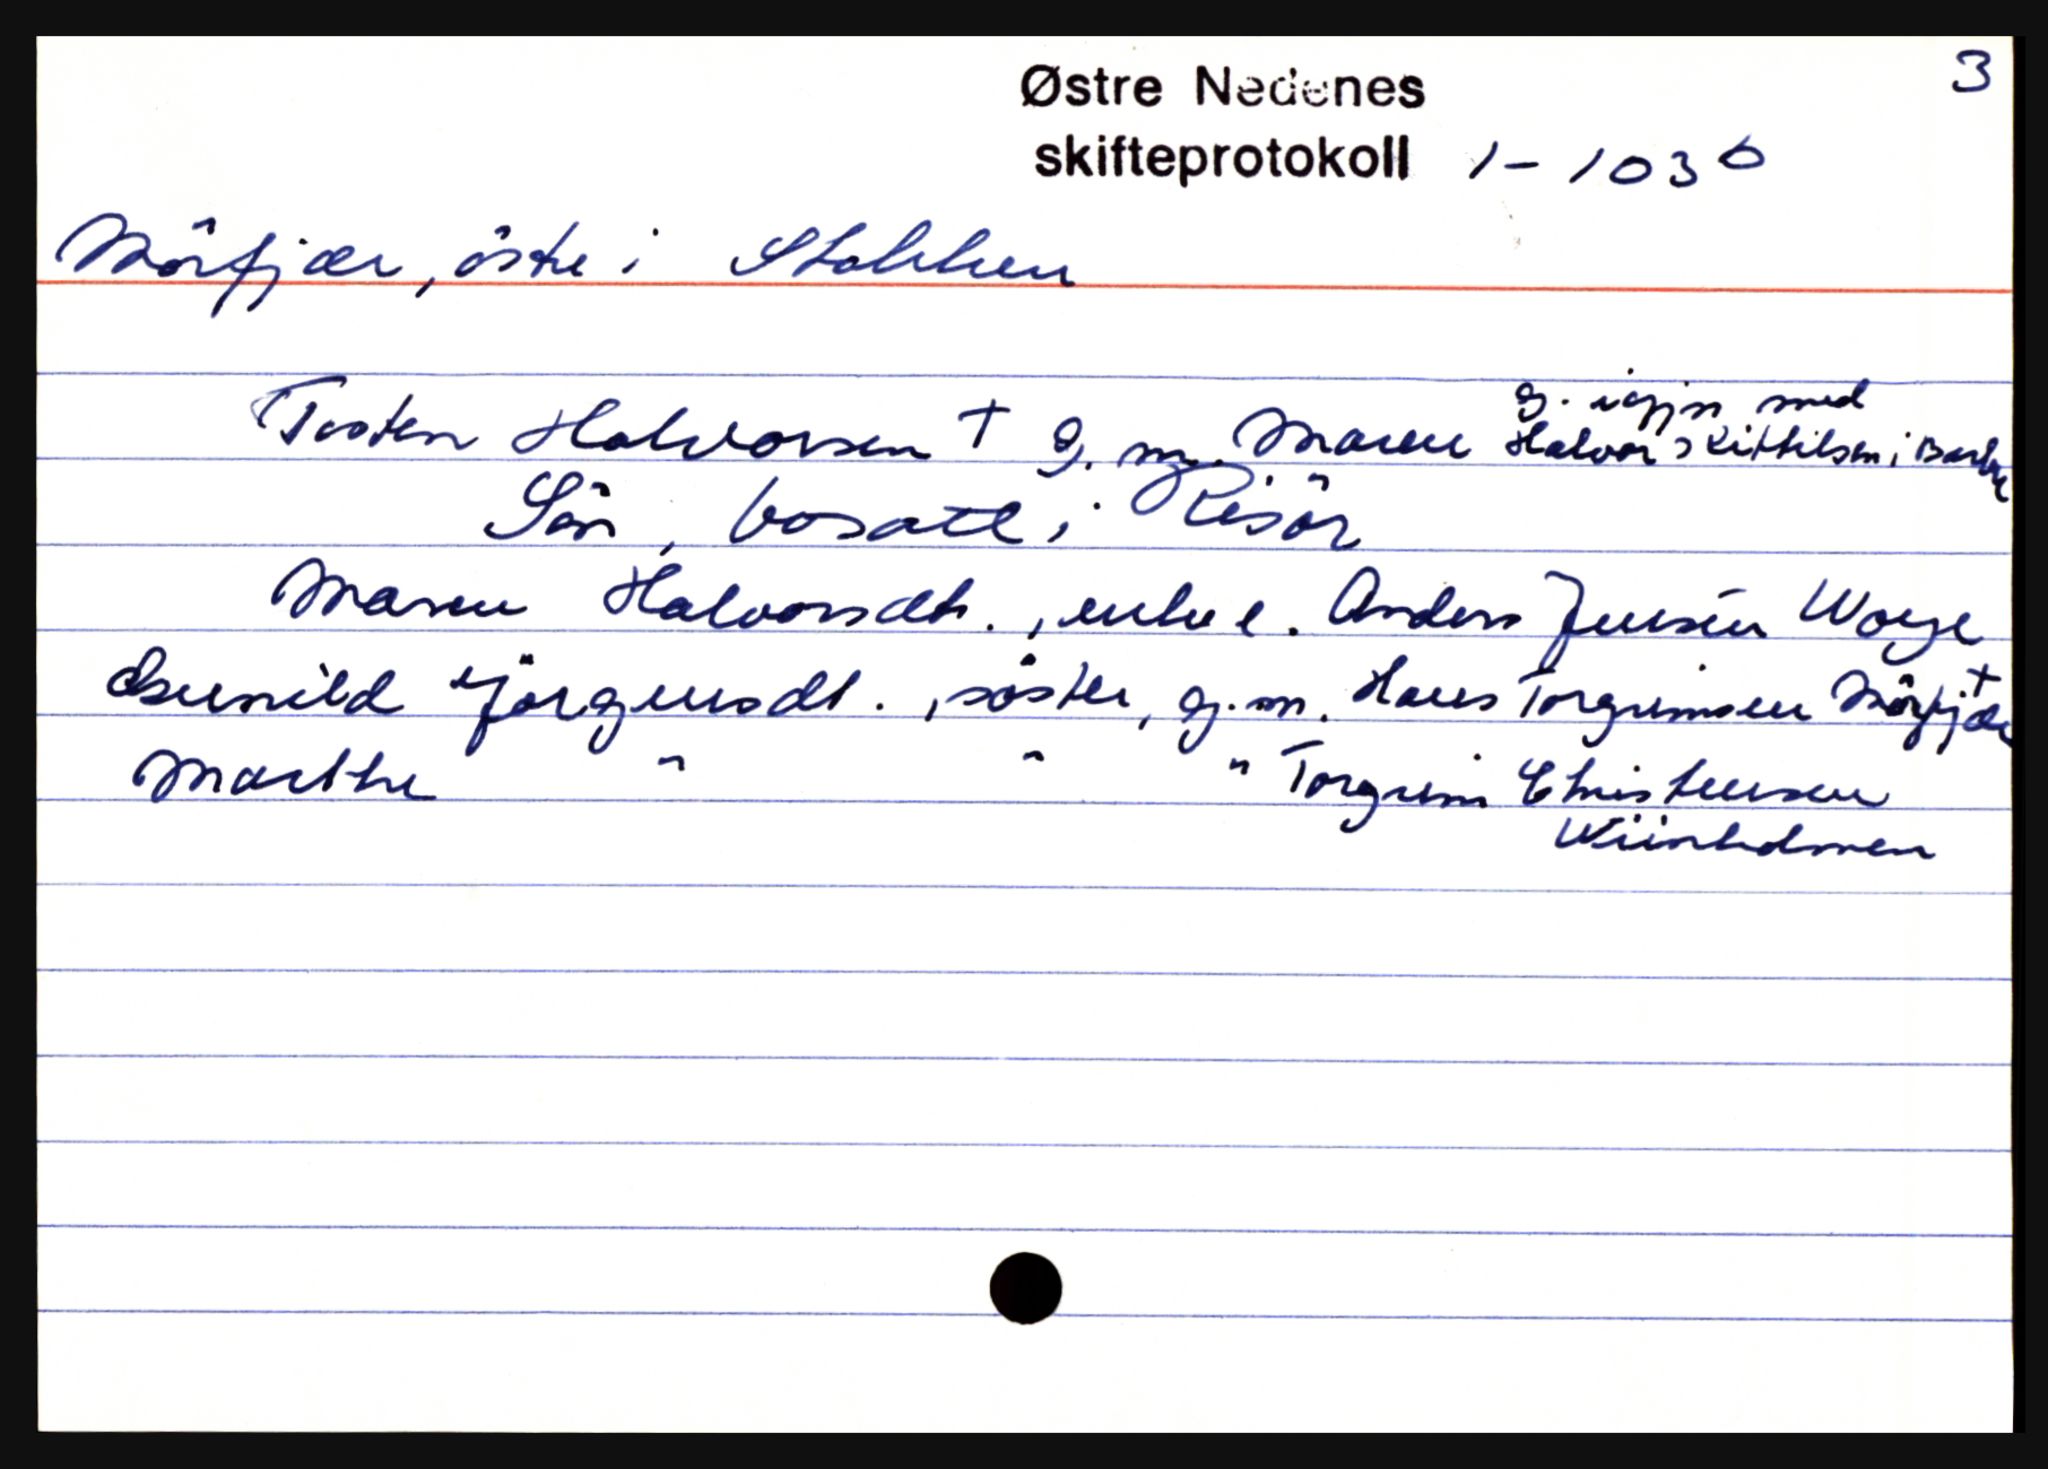 3
Østre Nedenes
skifteprotokoll 1-103b
Mörfjær, östre i Stokken
Tosten Halvorsen † g. m. Maren g. igjen med
Halvor Kittilsen i Barbu
Sön, bosatt i Risör
Maren Halvorsdt., enke e. Anders Jensen Woye
Gunild Jörgensdt., söster, gj. m. Hans Torgrimsen Mörfjær †
Marthe " " " Torgrim Christensen
Wiinholmen